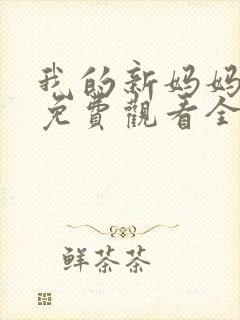 我的新妈妈
免費觀看全
鲜茶茶